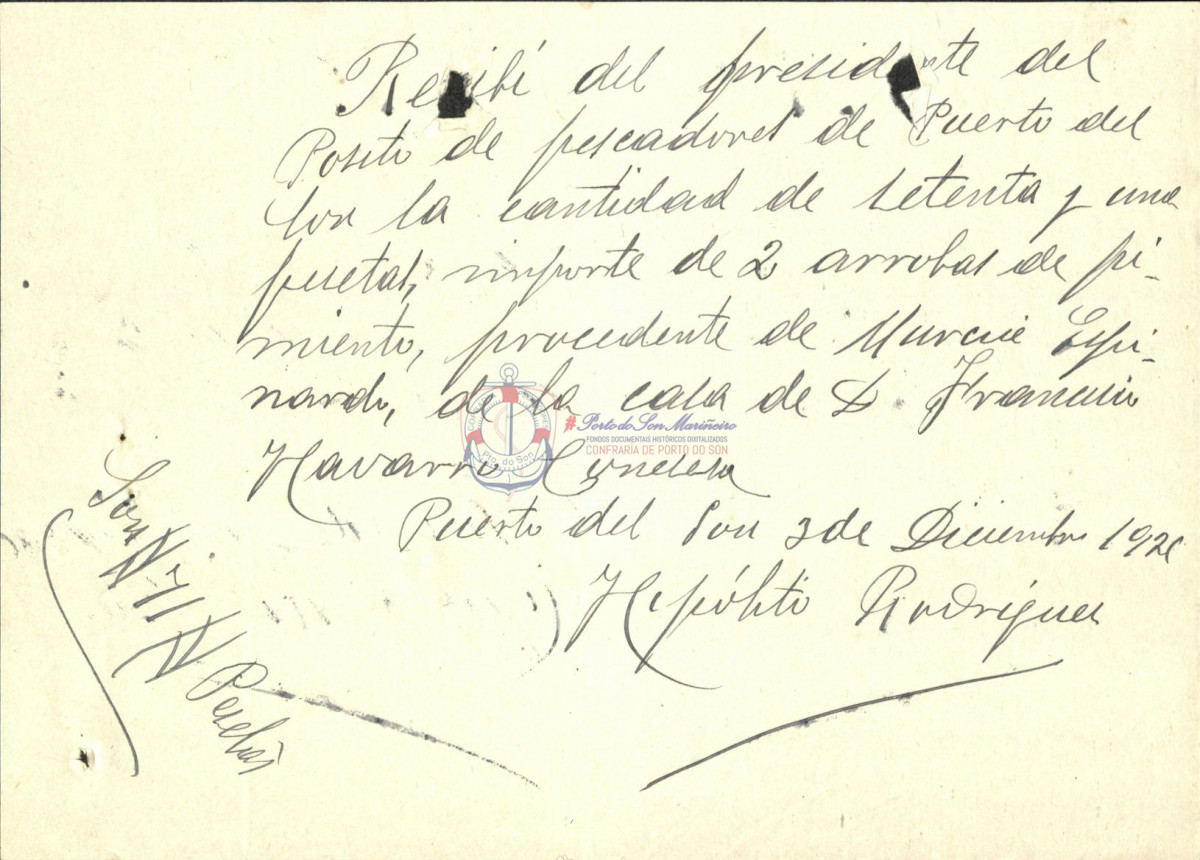 Recibí del presidente del
Posito de pescadores de Puerto del
Son la cantidad de setenta y una
pesetas, importe de 2 arrobas de pi-
miento, procedente de Murcia Espi-
nardo, de la casa de D Francisco
Navarro
Puerto del Son 3 de Diciembre 192
Hipólito Rodríguez
Son # 71 # Pesetas
Pto. do Son
#Porto do Son Mariñeiro
FONDOS DOCUMENTAIS HISTÓRICOS DIXITALIZADOS
CONFRARÍA DE PORTO DO SON